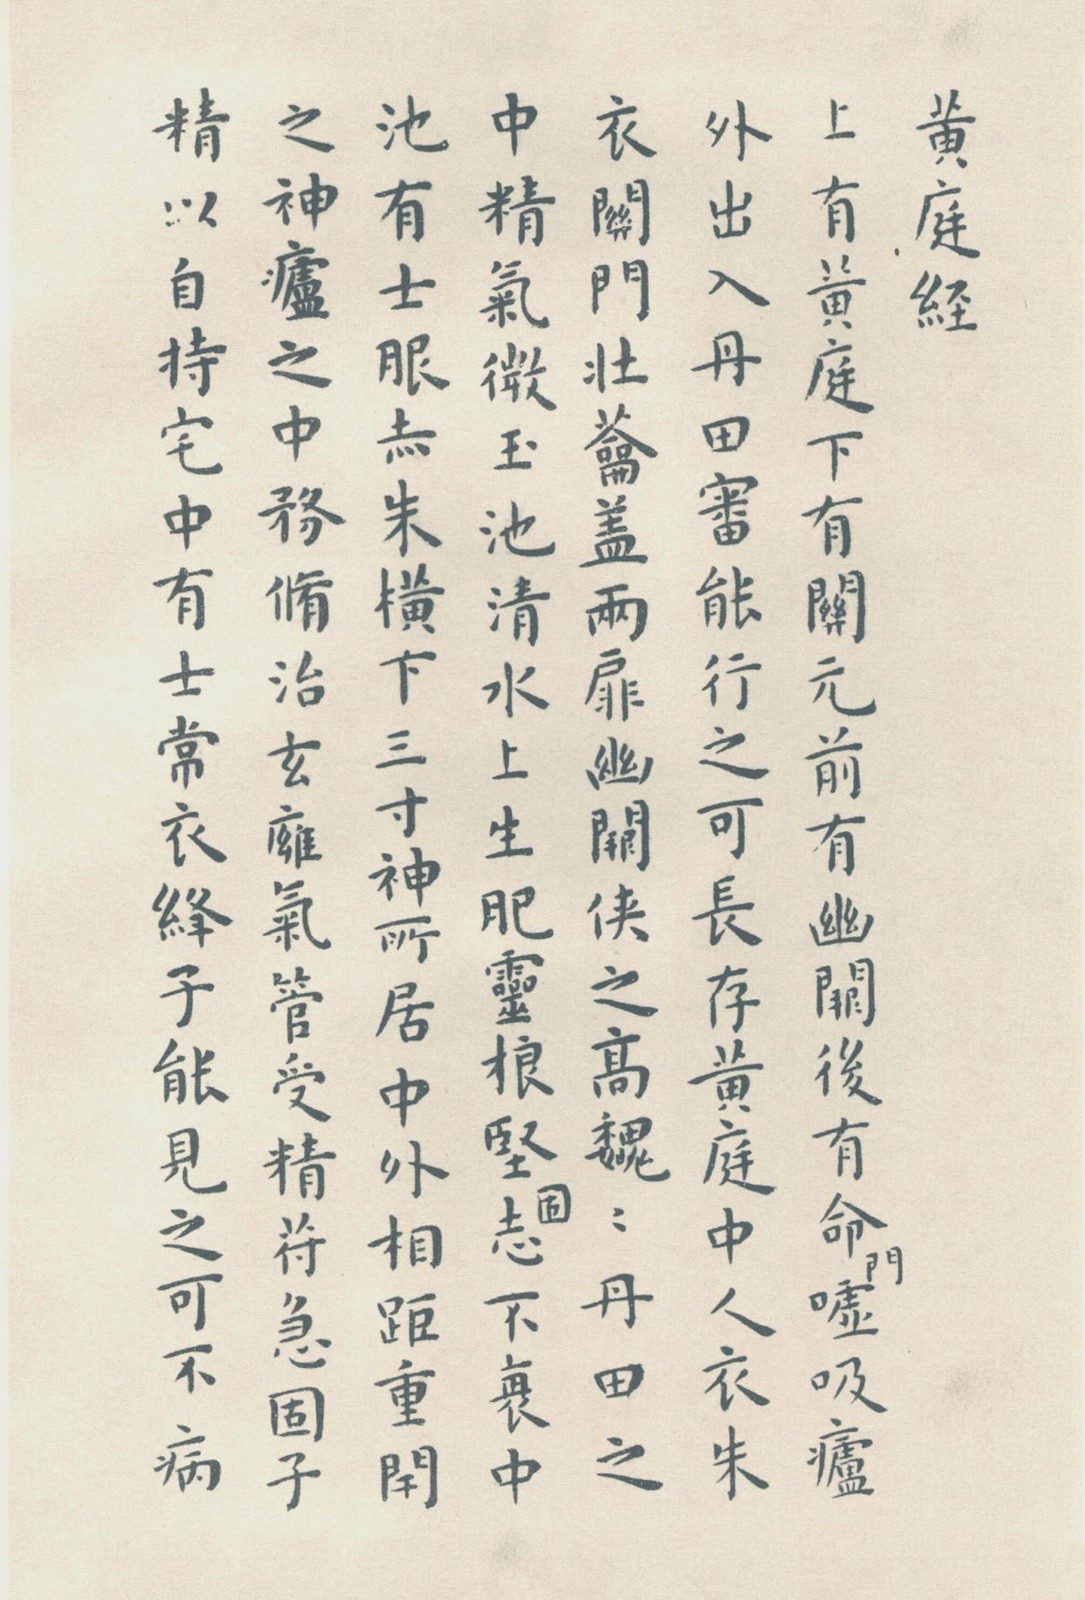 黃庭経
上有黃庭下有關元前有幽關後有命門噓吸廬
外出入丹田審能行之可長存黃庭中人衣朱
衣關門壯蘥盖兩扉幽關俠之高魏:丹田之
中精氣微玉池清水上生肥靈根堅固志不衰中
池有士服赤朱橫下三寸神所居中外相距重閇
之神廬之中務脩治玄廱氣管受精苻急固子
精以自持宅中有士常衣絳子能見之可不病